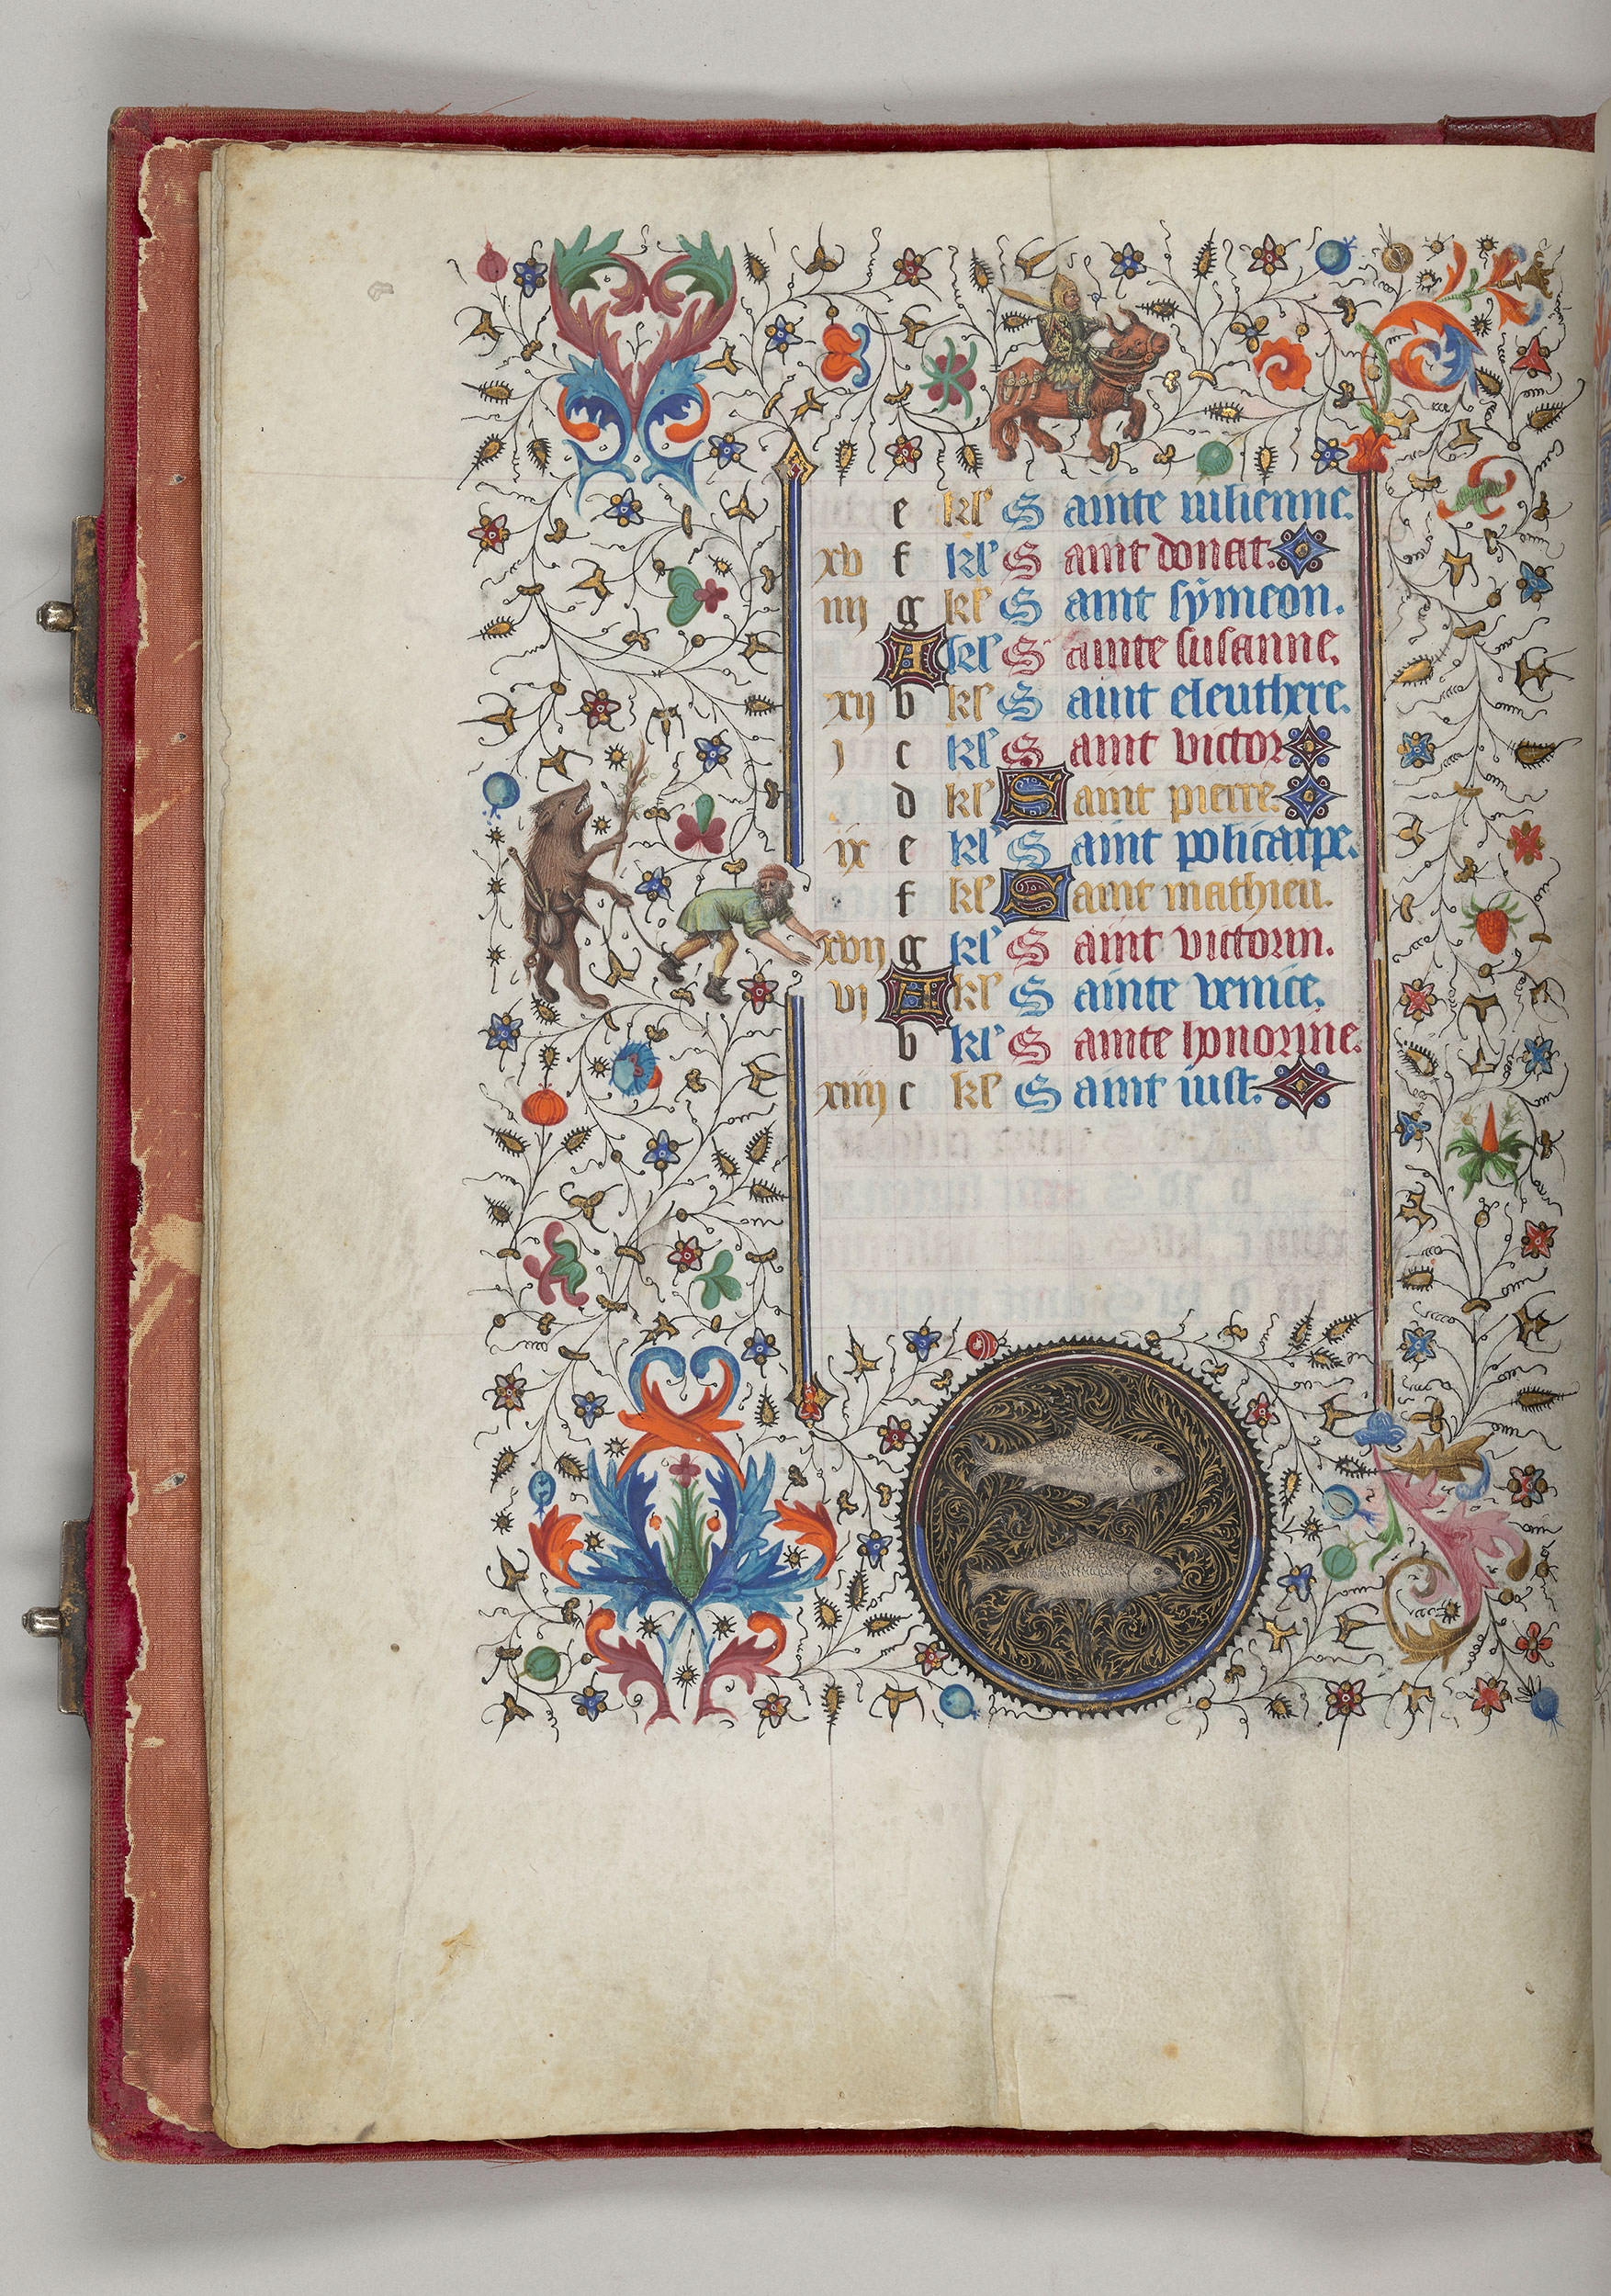 e kl' Sainte iulienne.
xv f kl' Saint donat.
iiij g kl' Saint symeon.
A kl' Sainte susanne.
xij b kl' Saint eleuthere.
j c kl' Saint victor
d kl' Saint pierre.
ix e kl' Saint policarpe.
f kl' Saint mathieu.
xvij g kl' Saint victorin.
vj A kl' Sainte venice.
b kl' Sainte honorine.
xiiij c kl' Saint iust.